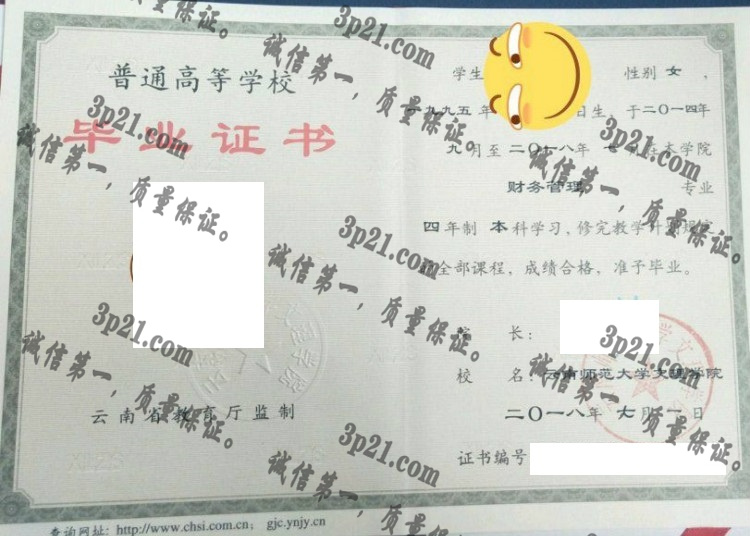 普通高等学校
毕业证书
云南省教育厅监制
查询网址: http://www.chsi.com.cn; gjc.ynjy.cn
学生 性别 女 ,
一九九五 年 日生, 于二〇一四年
九 月至 二〇一八 年 七 在本学院
财务管理 专业
四 年制 本 科学习, 修完教学计划规定
的全部课程, 成绩合格, 准予毕业。
院 长:
校 名: 云南师范大学文理学院
二〇一八年 七 月 一 日
证书编号
3p21.com
诚信第一,质量保证。
3p21.com
诚信第一,质量保证。
3p21.com
诚信第一,质量保证。
3p21.com
诚信第一,质量保证。
3p21.com
诚信第一,质量保证。
3p21.com
诚信第一,质量保证。
3p21.com
诚信第一,质量保证。
3p21.com
诚信第一,质量
质量保证。